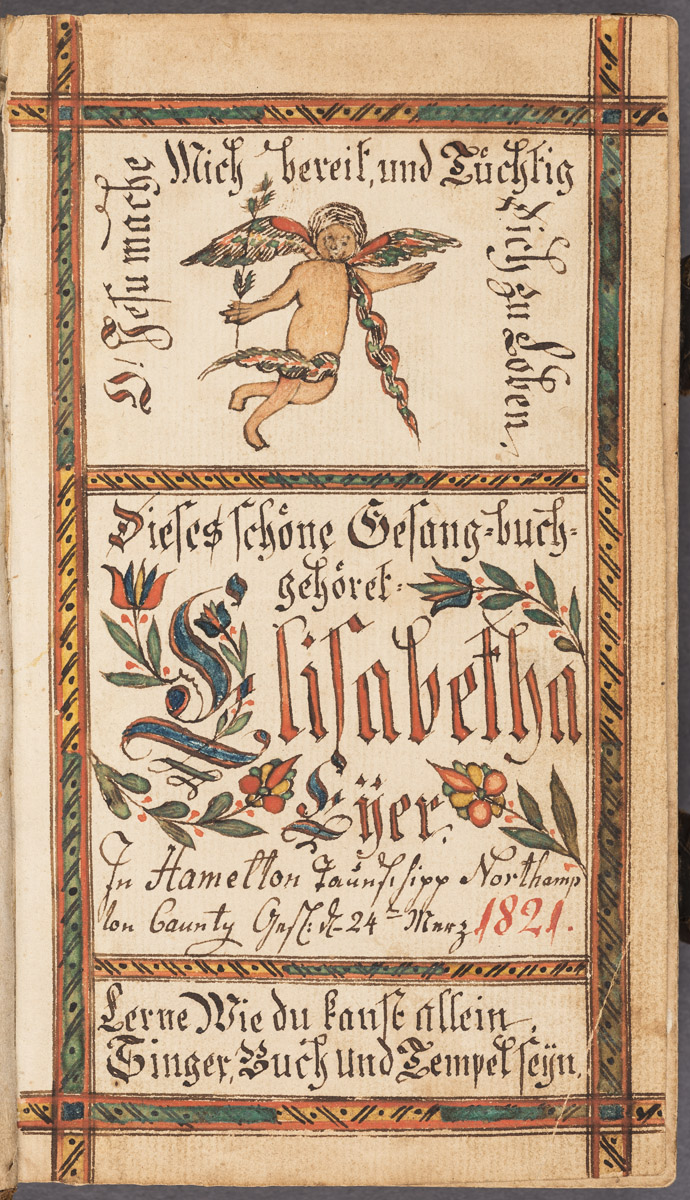 O! Jesu mache
Mich bereit, und Tüchtig
Dich zu Loben.
Dieses schöne Gesang-buch-
gehöret-
Elisabetha
Eÿer.
In Hamelton Taunschipp Northamp
ton Caunty Gesc: d- 24- Merz 1821.
Lerne Wie du kanst allein,
Singer, Buch und Tempel seÿn.